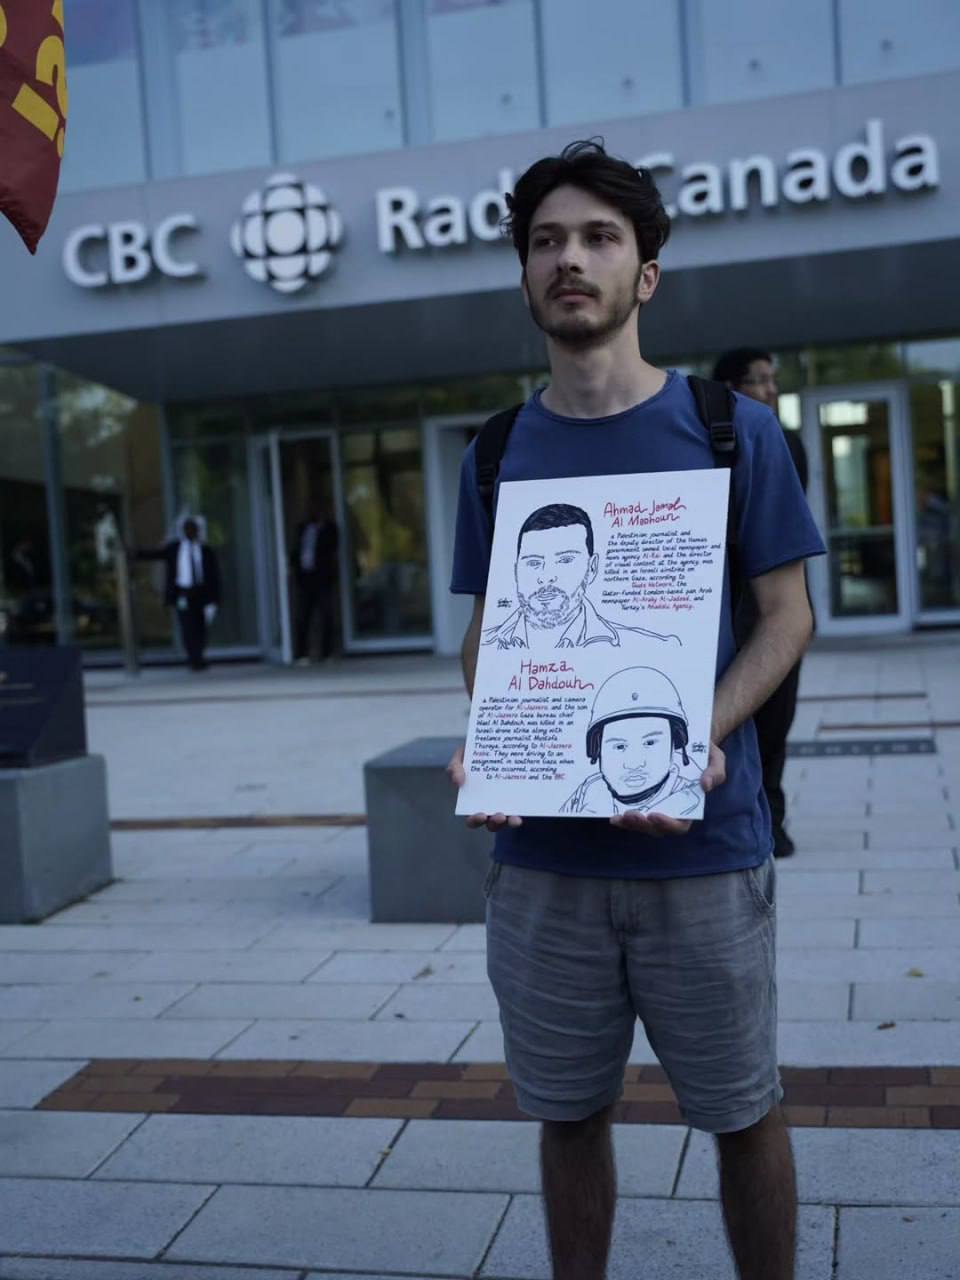 CBC Radio Canada
Ahmad Jamal
Al Madhoun
a Palestinian journalist and
the deputy director of the Hamas
government owned local newspaper and
news agency Al-Rai and the director
of visual content at the agency, was
killed in an Israeli airstrike on
northern Gaza, according to
Quds Network, the
Qatar-funded London-based pan Arab
newspaper Al-Araby Al-Jadeed, and
Turkey's Anadolu Agency.
Hamza
Al Dahdouh
a Palestinian journalist and camera
operator for Al-Jazeera and the son
of Al-Jazeera Gaza bureau chief
Wael Al Dahdouh, was killed in an
Israeli drone strike along with
freelance journalist Mustafa
Thuraya, according to Al-Jazeera
Arabic. They were driving to an
assignment in southern Gaza when
the strike occurred, according
to Al-Jazeera and the BBC.